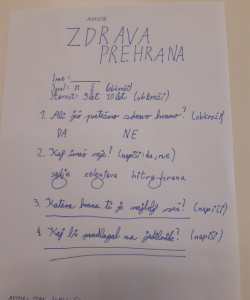 ANKETA
ZDRAVA
PREHRANA
Ime:
Spol: M Ž (obkroži)
Starost: 9 let 10 let (obkroži)
1. Ali ješ zdravo hrano? (obkroži)
DA NE
2. Kaj imaš raje? (napiši: da, ne)
sadje zelenjava hitra hrana
3. Katera hrana ti je najbolj všeč? (napiši)
4. Kaj bi predlagal na jedilnik? (napiši)